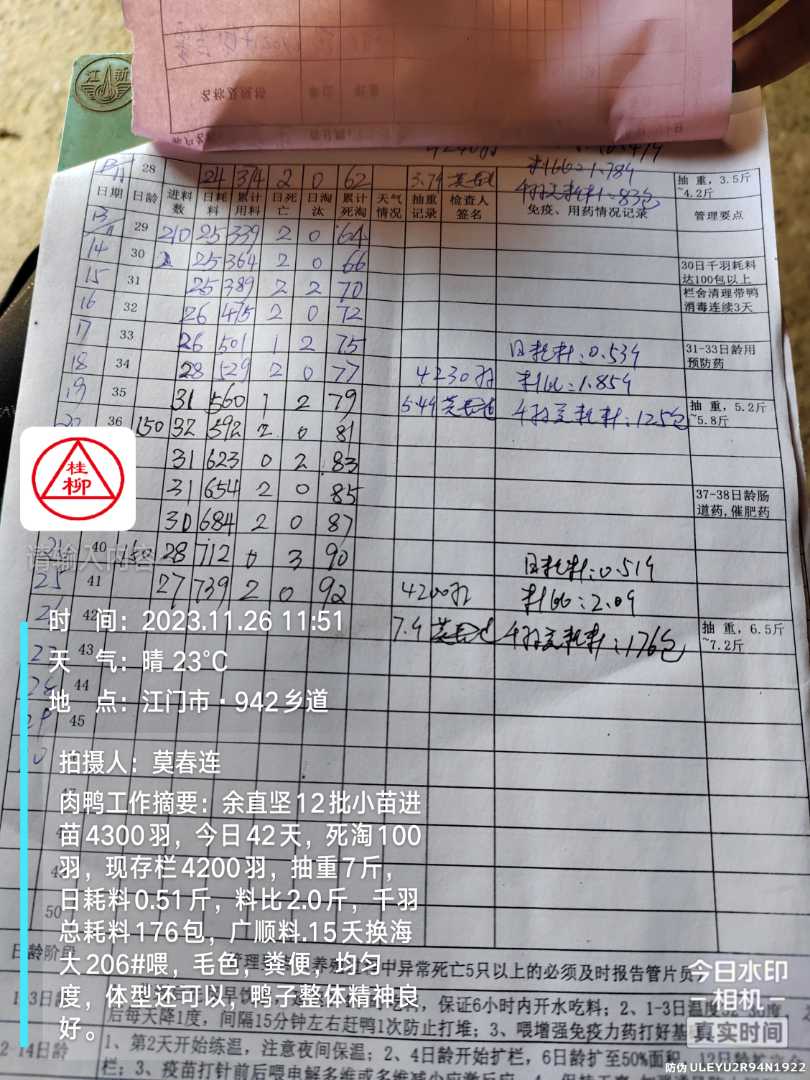 江
新
名称及规格
28 24 314 2 0 62 3.79
料比:1.789
抽重，3.5斤
~4.2斤
日期 日龄 进料数 日耗料 累计用料 日死亡 日淘汰 累计死淘 天气情况 抽重记录 检查人签名 免疫、用药情况记录 管理要点
29 210 25 339 2 0 64
14 30 25 364 2 0 66
30日千羽耗料
达100包以上
15 31 25 389 2 2 70
栏舍清理带鸭
消毒连续3天
16 32 26 475 2 0 72
17 33 26 501 1 2 75
日耗料:0.539
31-33日龄用
预防药
18 34 28 529 2 0 77 4230羽 料比:1.859
19 35 31 560 1 2 79 5.49 千羽总耗料:125包
抽重，5.2斤
~5.8斤
36 150 32 592 2 0 81
31 623 0 2 83
31 654 2 0 85
37-38日龄肠
道药,催肥药
30 684 2 0 87
40 150 28 712 0 3 90 日耗料:0.519
25 41 27 739 2 0 92 4200羽 料比:2.09
42 7.4 千羽总耗料:176包
抽重，6.5斤
~7.2斤
43
44
45
50
桂
柳
请输入内容
时 间：2023.11.26 11:51
天 气：晴 23℃
地 点：江门市·942乡道
拍摄人：莫春连
肉鸭工作摘要：余直坚12批小苗进
苗4300羽，今日42天，死淘100
羽，现存栏4200羽，抽重7斤，
日耗料0.51斤，料比2.0斤，千羽
总耗料176包，广顺料.15天换海
大206#喂，毛色，粪便，均匀
度，体型还可以，鸭子整体精神良
好。
日龄阶段
中异常死亡5只以上的必须及时报告管片员
1-3日
保证6小时内开水吃料；2、1-3日温度
后每天降1度，间隔15分钟左右赶鸭1次防止打堆；3、喂增强免疫力药打好基
2-14日龄
1、第2天开始练温，注意夜间保温；2、4日龄开始扩栏，6日龄扩至50%面积，12日龄扩
栏；3、疫苗打针前后喂电解多维或多维减少应激反应
今日水印
相机
真实时间
防伪 ULEYU2R94N1922